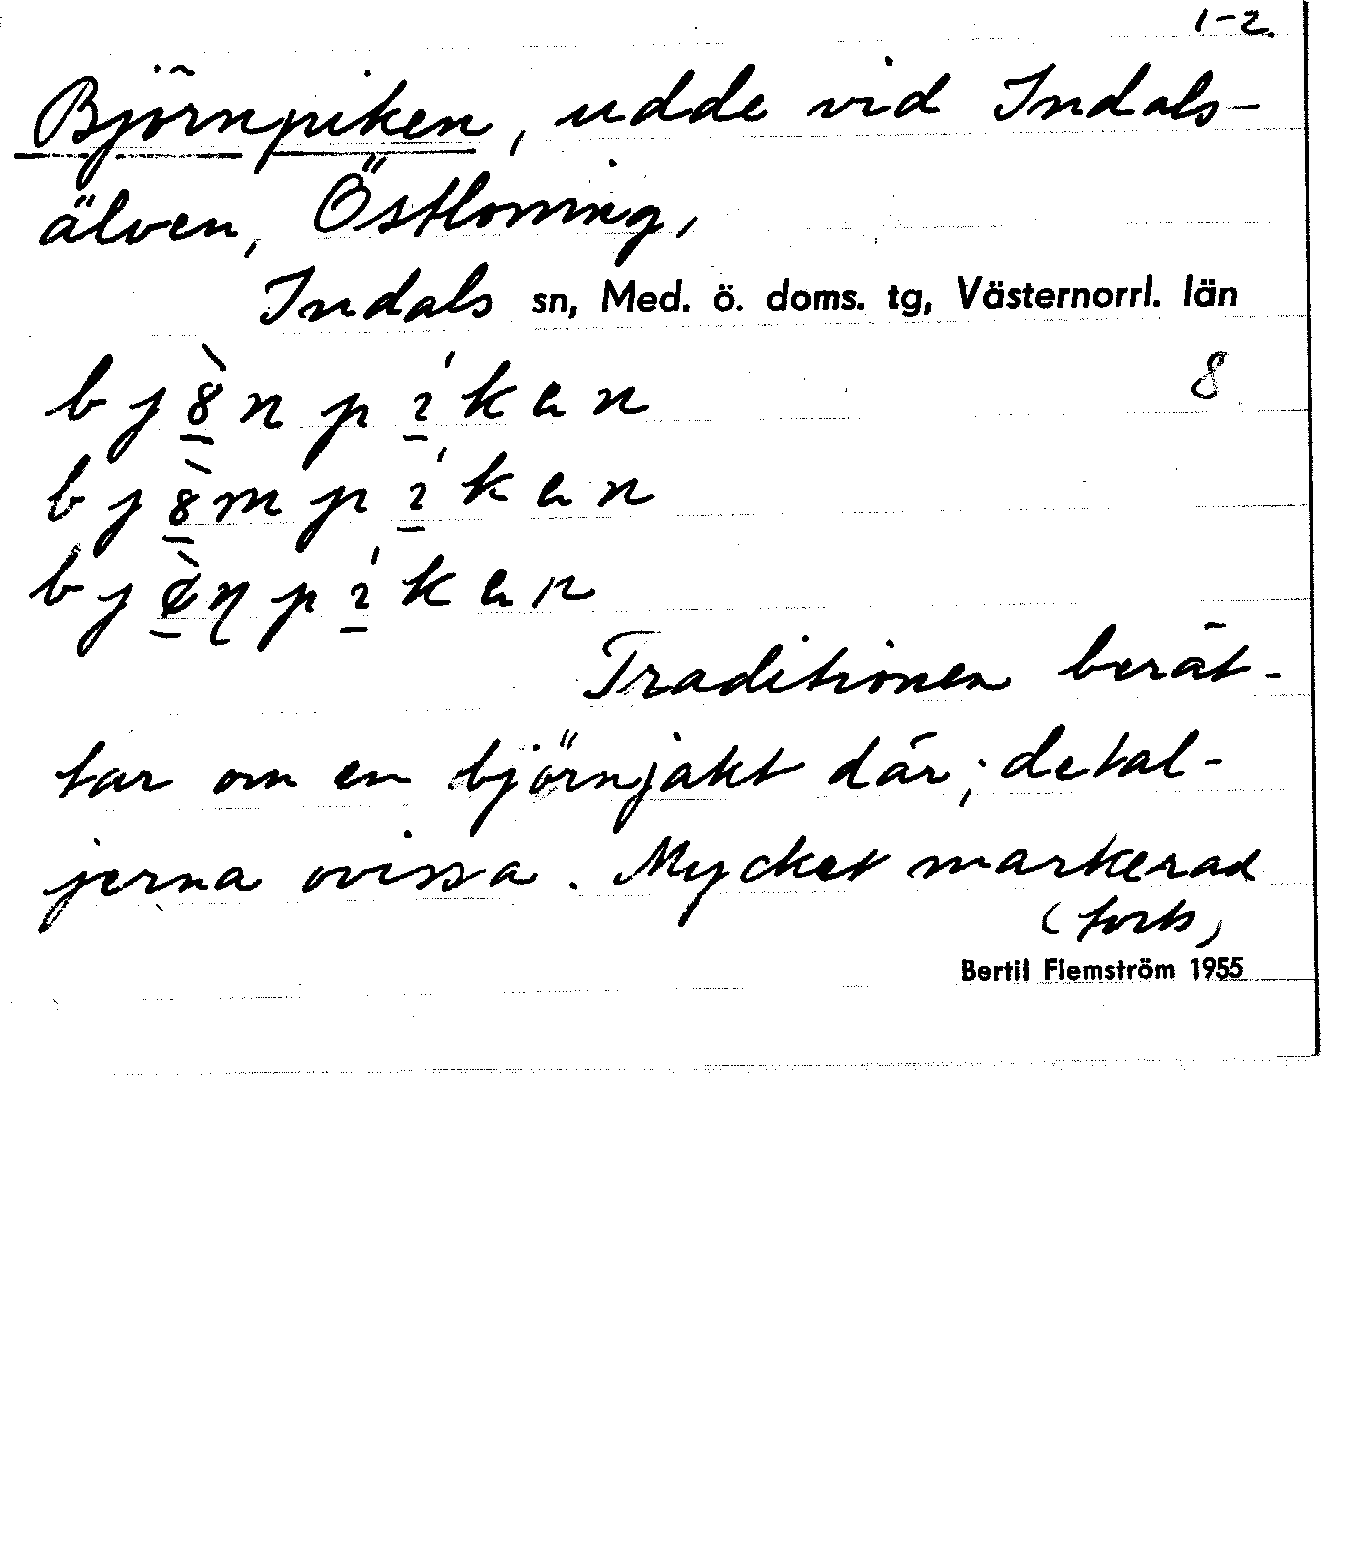 1-2.
Björnpiken, udde vid Indals-
älven, Östloning,
Indals sn, Med. ö. doms. tg, Västernorrl. län
8
Traditionen berät-
tar om en björnjakt där; detal-
jerna ovissa. Mycket markerad
(forts)
Bertil Flemström 1955